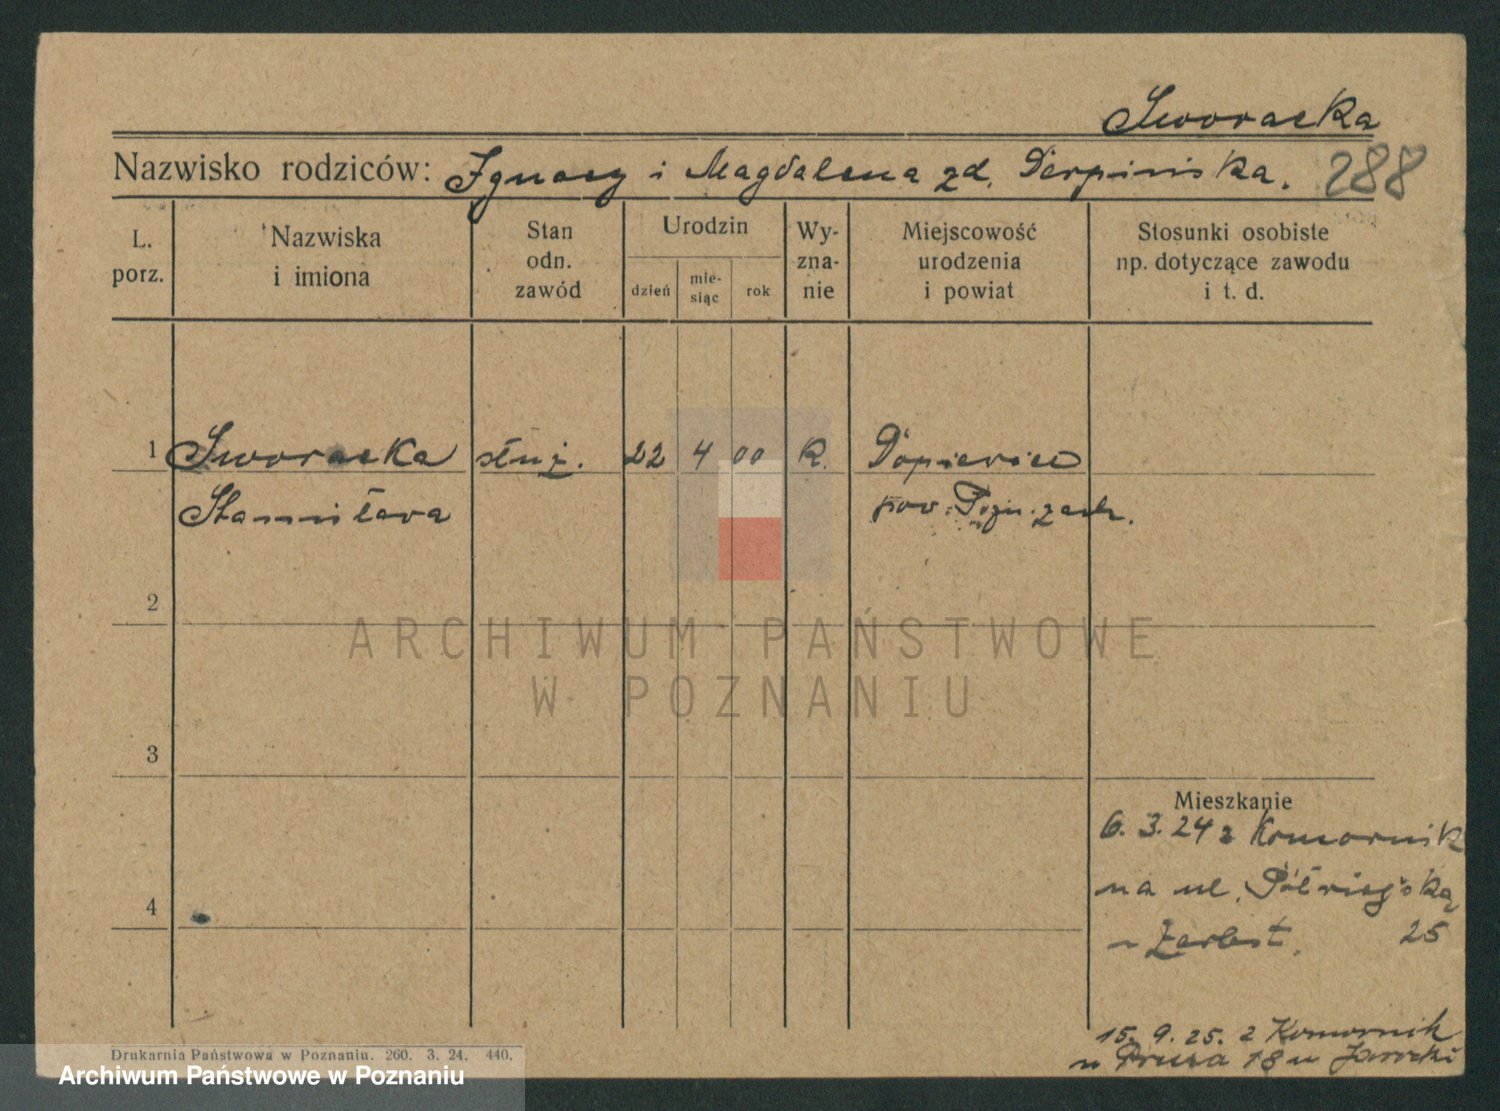 Sworacka
Nazwisko rodziców: Ignacy i Magdalena zd. Cierpinska. 288
L. porz.
Nazwiska i imiona
Stan odn. zawód
Urodzin
dzień
mie-siąc
rok
Wy-zna-nie
Miejscowość urodzenia i powiat
Stosunki osobiste np. dotyczące zawodu i t. d.
1 Sworacka służ. 22 4 00 k. Dopiewiec
Stanisława pow. Pozn. zach.
2
ARCHIWUM PAŃSTWOWE
W POZNANIU
3
Mieszkanie
6. 3. 24 z Komornik
na ul. Półwiejską
25
4
15. 9. 25. z Komornik
18 u Jarocki
Drukarnia Państwowa w Poznaniu. 260. 3. 24. 440.
Archiwum Państwowe w Poznaniu